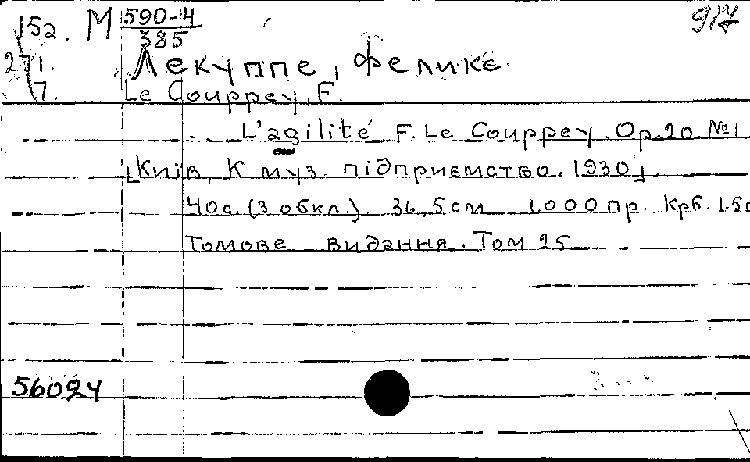 152. М 590-4 917
385
271. Лекуппе, Фелике.
7. Le Couppey, F.
L'agilité F. Le Couppey. Op. 20 №1
[Київ, К муз. підприємство. 1930].
40с. (з обкл.). 34,5см 1000 пр. Крб. 1.50
Томове видання. Том 25
56024